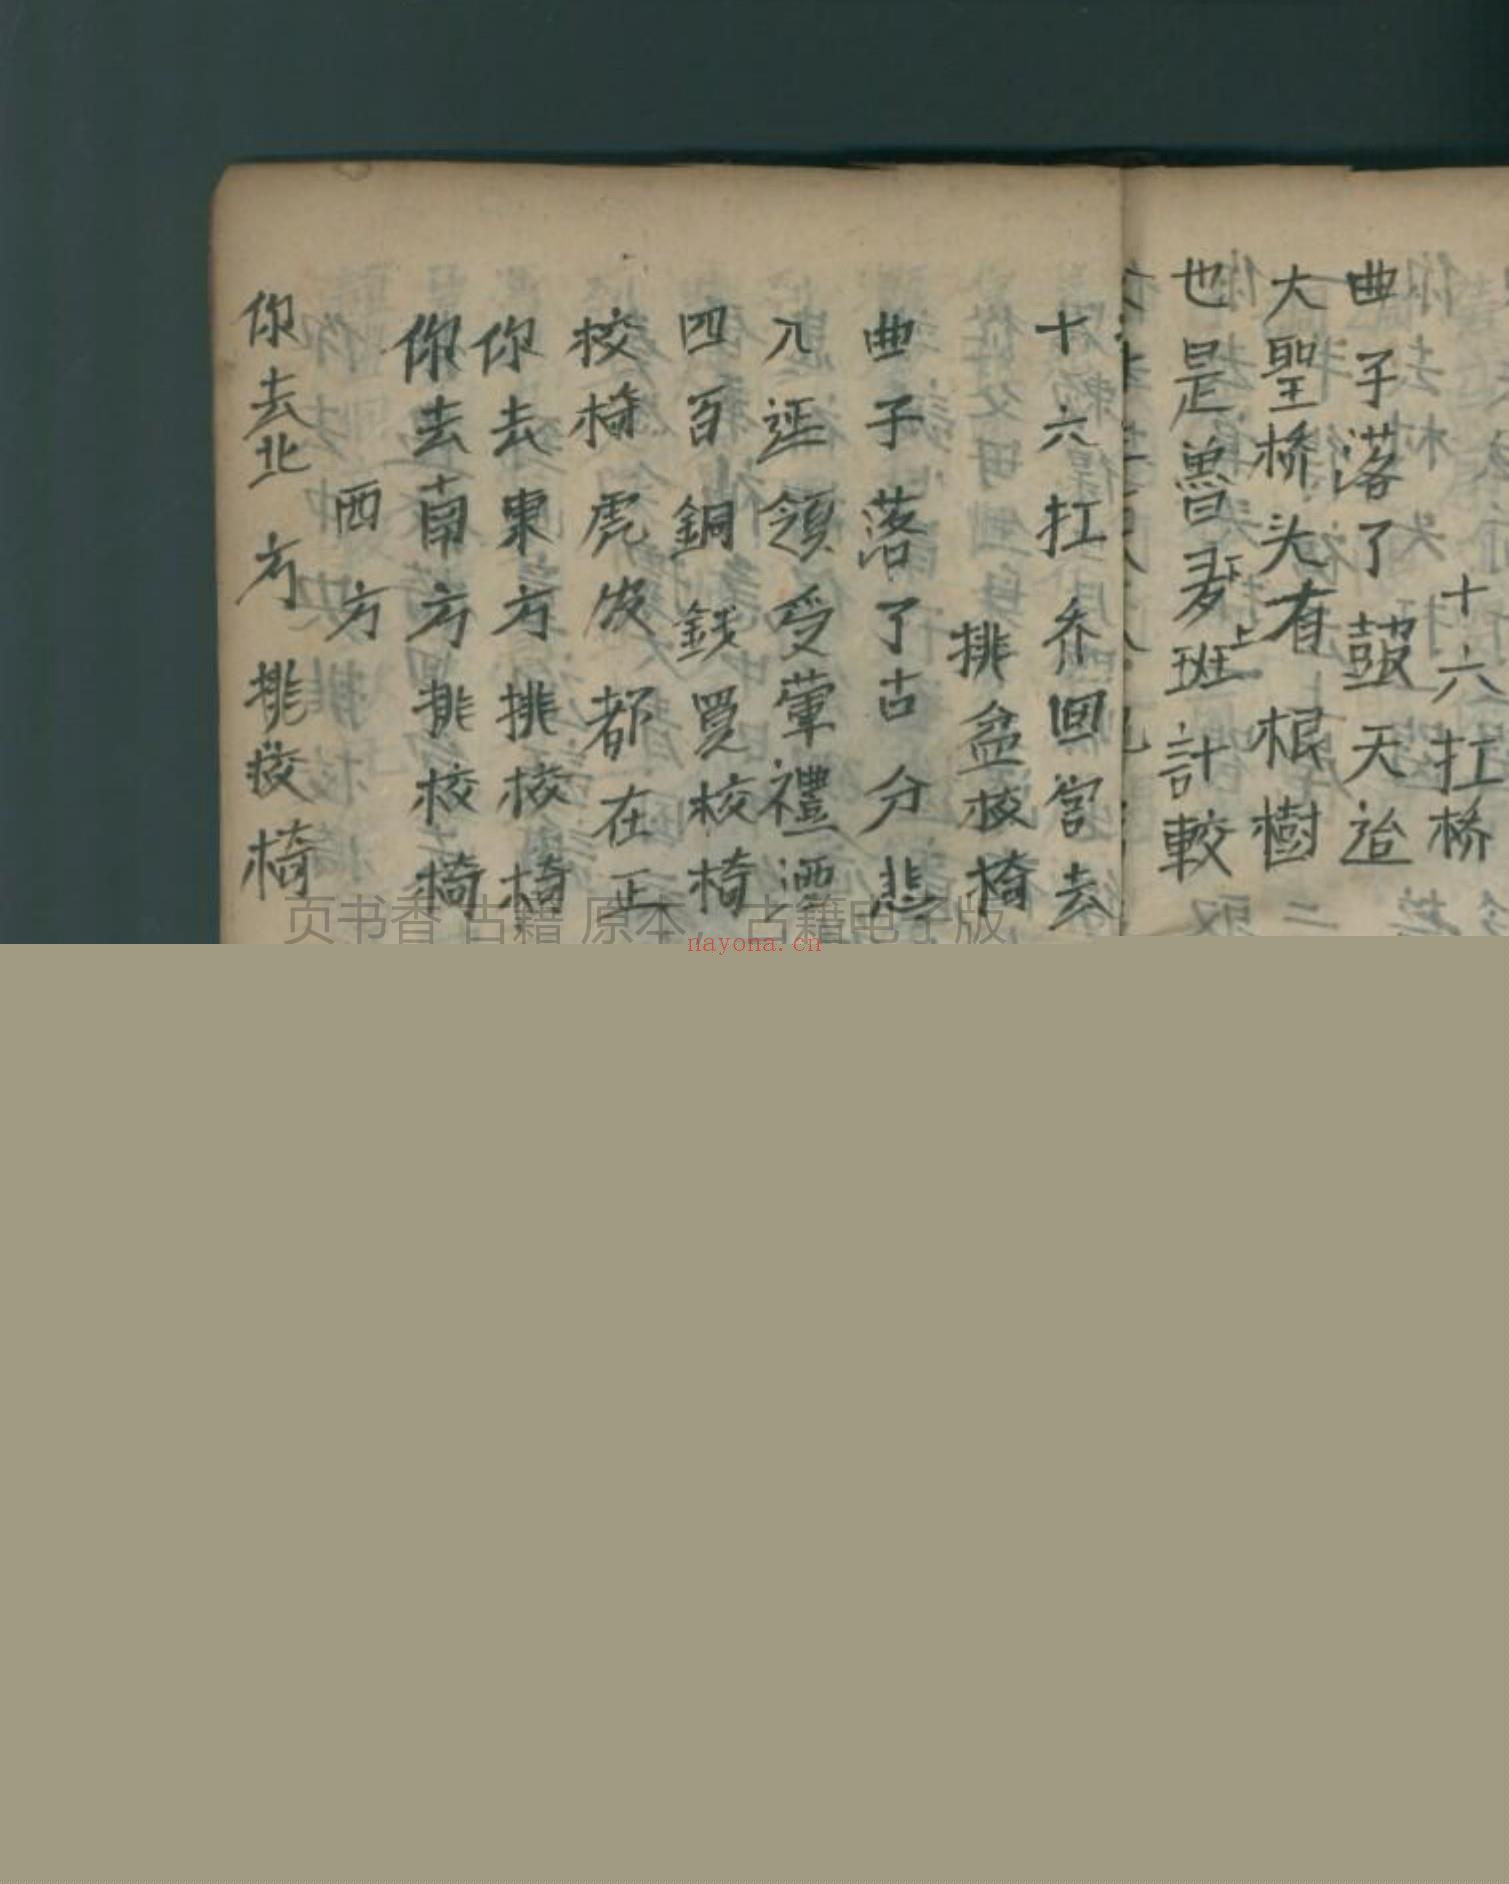 十六扛桥
曲子落了鼓天迨
大聖桥头有根樹
也是魯班計較
下
上
十六扛乔回宫去
排盆校椅
曲子落了古分悲
八迳領受葷禮洒
四百銅錢買校椅
校椅虎皮都在正
你去東方排校椅
你去南方排校椅
西方
你去北方排校椅
页书香 古籍 原本，古籍电子版
nayona.cn